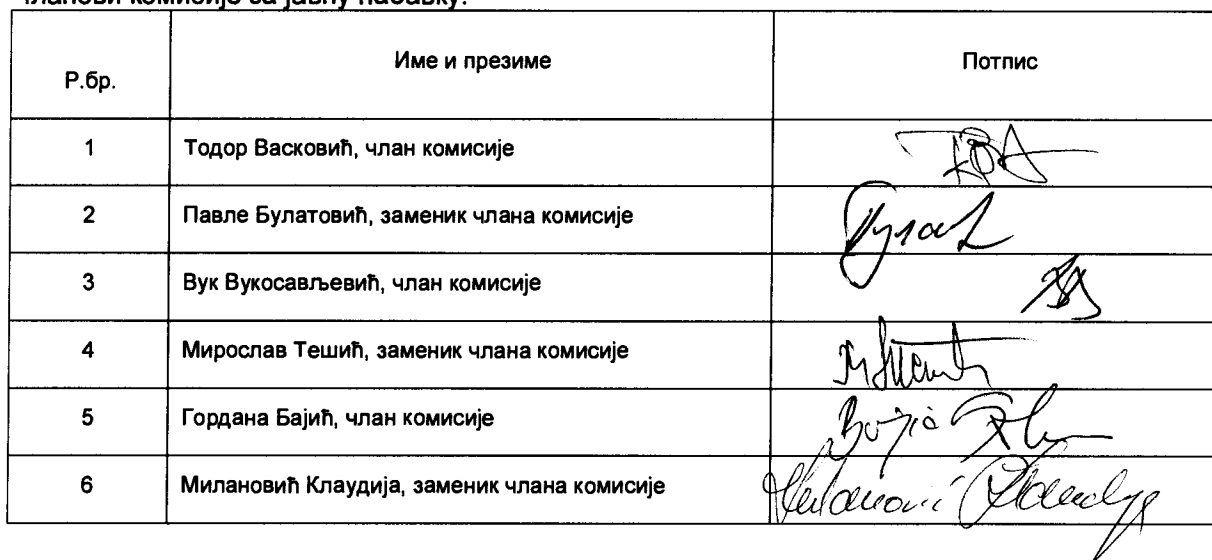 чланови комисије за јавну набавку:
Р.бр. Име и презиме Потпис
1 Тодор Васковић, члан комисије
2 Павле Булатовић, заменик члана комисије
3 Вук Вукосављевић, члан комисије
4 Мирослав Тешић, заменик члана комисије
5 Гордана Бајић, члан комисије
6 Милановић Клаудија, заменик члана комисије